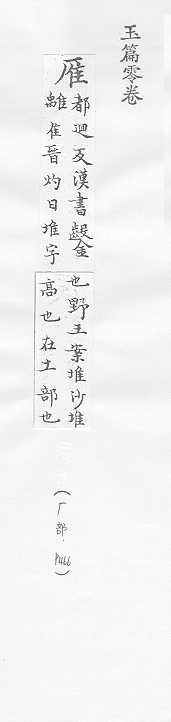 玉篇零卷
雁
都迴反漢書鑿
離崔晉灼曰堆字
也野王案堆沙堆
高也在土部也
(厂部.P466)